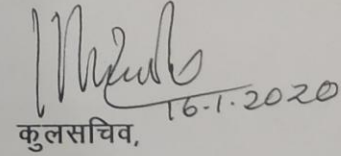 16-1-2020
कुलसचिव,